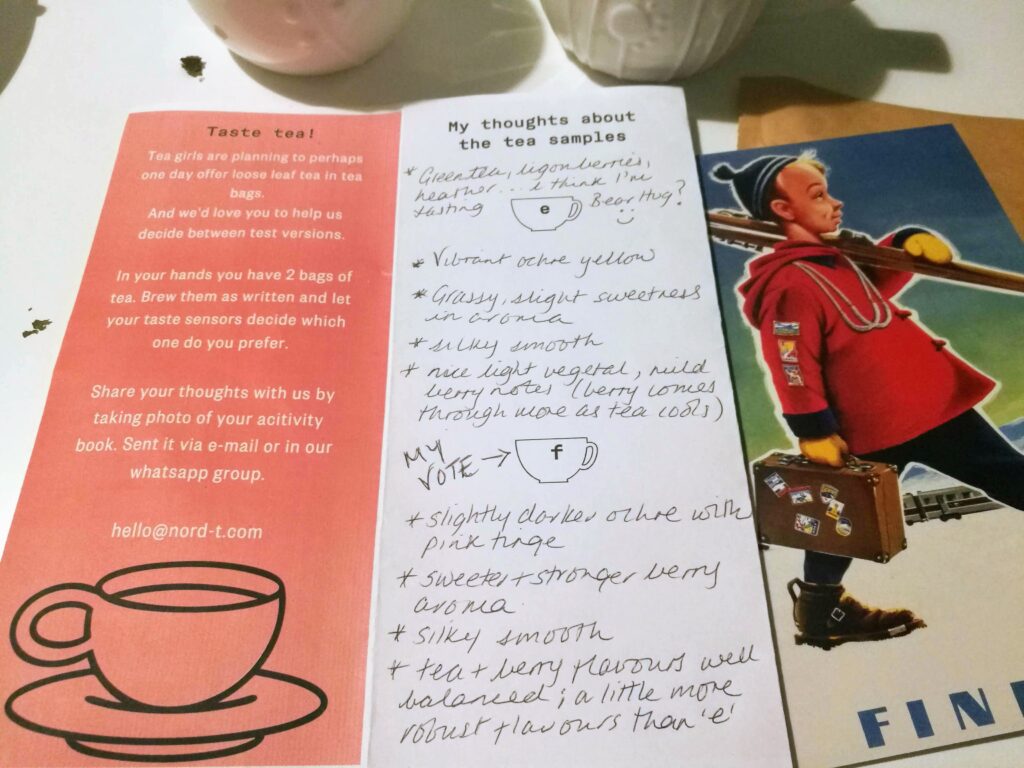 Taste tea!
Tea girls are planning to perhaps
one day offer loose leaf tea in tea
bags.
And we'd love you to help us
decide between test versions.
In your hands you have 2 bags of
tea. Brew them as written and let
your taste sensors decide which
one do you prefer.
Share your thoughts with us by
taking photo of your acitivity
book. Sent it via e-mail or in our
whatsapp group.
hello@nord-t.com
My thoughts about
the tea samples
* Green tea, ligonberries,
heather... i think I'm
tasting Bear Hug?
e :)
* Vibrant ochre yellow
* Grassy, slight sweetness
in aroma
* silky smooth
* nice light vegetal, mild
berry notes (berry comes
through more as tea cools)
MY
VOTE → f
* slightly darker ochre with
pink tinge
* sweeter + stronger berry
aroma
* silky smooth
* tea + berry flavours well
balanced; a little more
robust flavours than 'e'
FIN